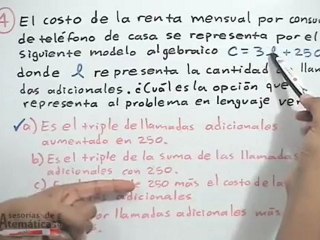 4) El costo de la renta mensual por consu
de teléfono de casa se representa por el
siguiente modelo algebraico C=3l+250
donde l representa la cantidad
das adicionales. ¿Cuál es la opción que
representa al problema en lenguaje ver
✓a) Es el triple de llamadas adicionales
aumentado en 250.
b) Es el triple de la suma de las llamadas
adicionales con 250.
c) 250 más el costo de la
adicionales
por llamadas adicionales más
sesorías de
atemática